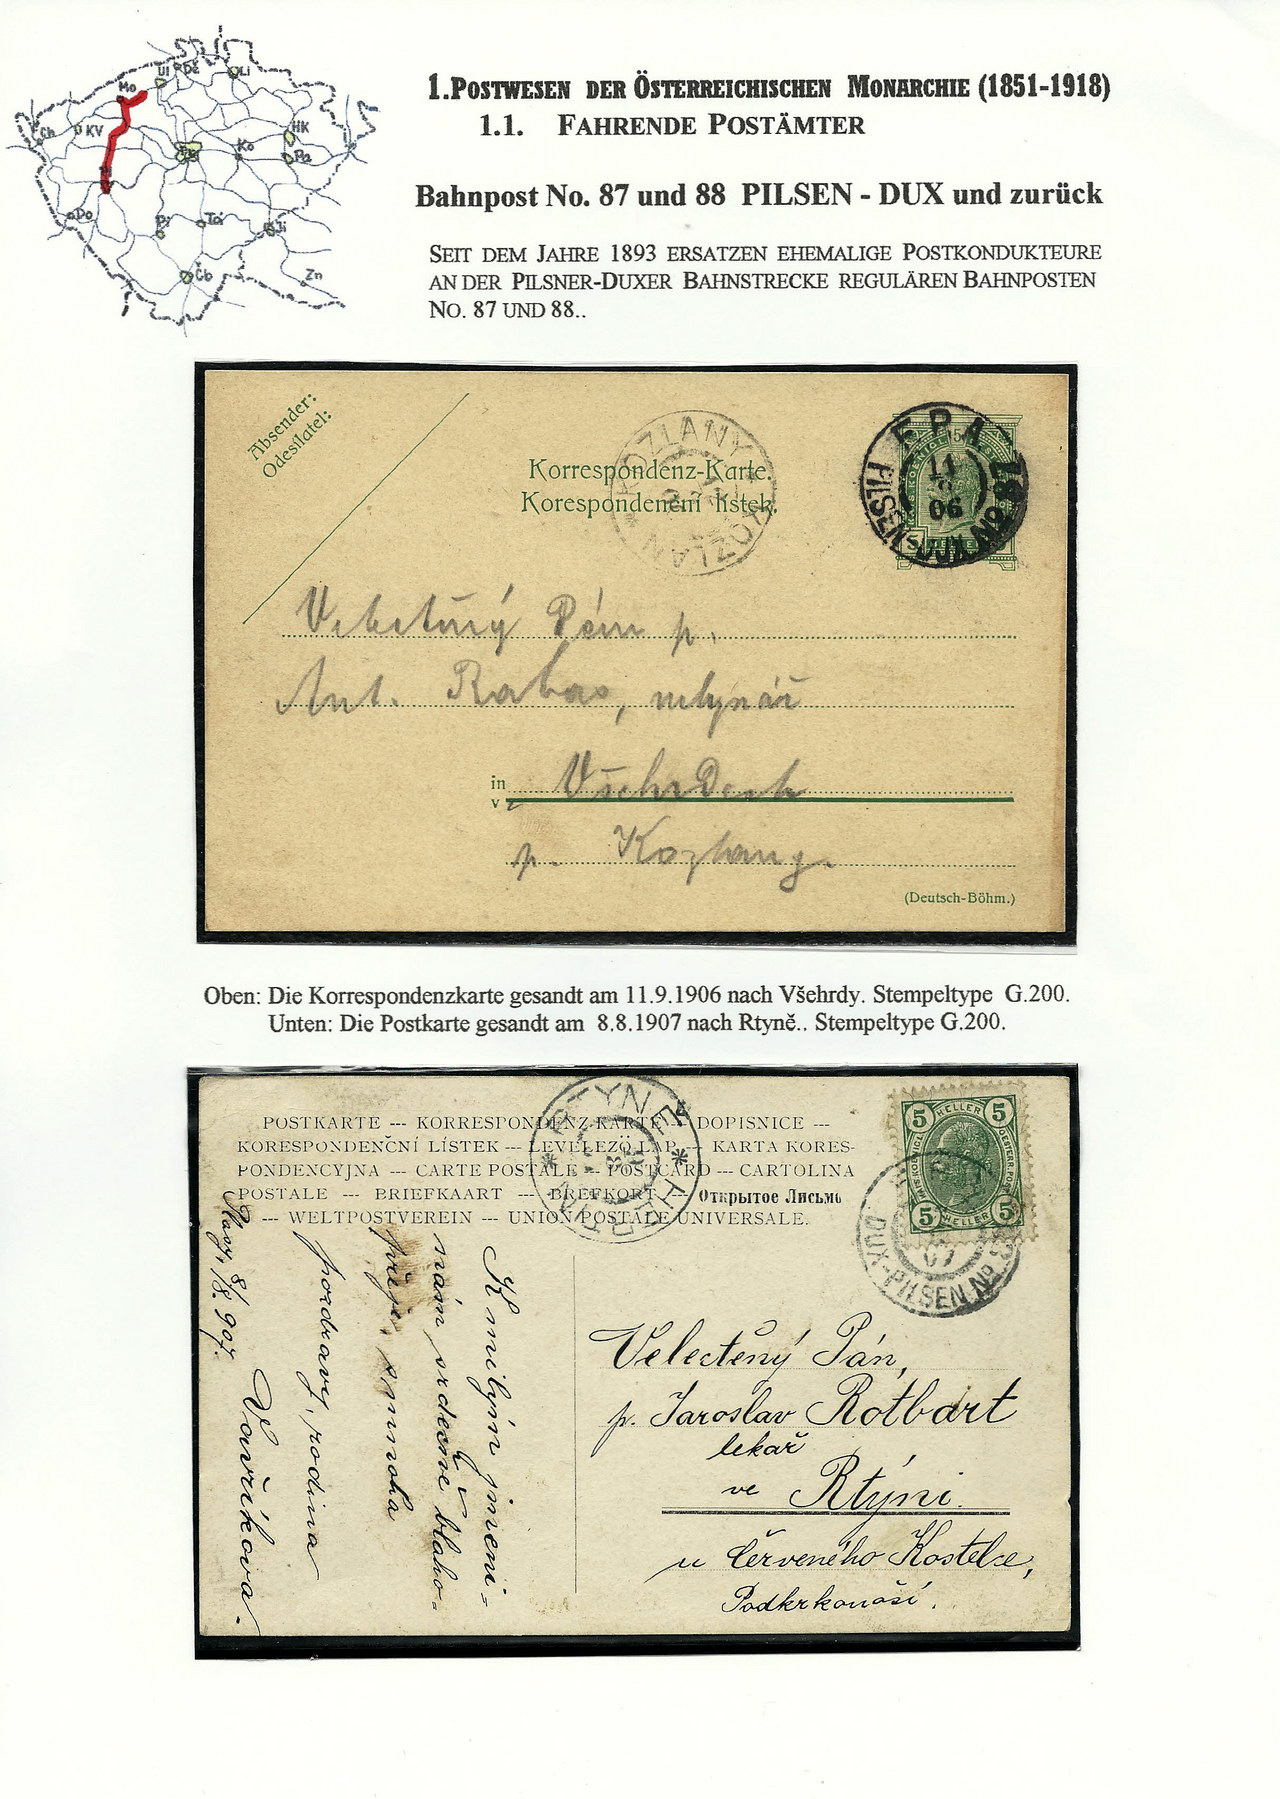 Mo
Ul
Dě
Li
Ch
KV
HK
Pg
Ko
Pa
Do
Pí
Tá
Ji
Čb
Zn
1. POSTWESEN DER ÖSTERREICHISCHEN MONARCHIE (1851-1918)
1.1. FAHRENDE POSTÄMTER
Bahnpost No. 87 und 88 PILSEN - DUX und zurück
SEIT DEM JAHRE 1893 ERSATZEN EHEMALIGE POSTKONDUKTEURE
AN DER PILSNER-DUXER BAHNSTRECKE REGULÄREN BAHNPOSTEN
NO. 87 UND 88..
Absender:
Odesílatel:
Korrespondenz-Karte.
Korespondenční lístek.
KOZLANY
KOZLAN
F.P.A.
11
9
06
PILSEN-DUX No 87
5
HELLER
Veletěný Pán p.
Ant. Rabas, mlynář
in
v
Všehrdech
p. Kozlany.
(Deutsch-Böhm.)
Oben: Die Korrespondenzkarte gesandt am 11.9.1906 nach Všehrdy. Stempeltype G.200.
Unten: Die Postkarte gesandt am 8.8.1907 nach Rtyně.. Stempeltype G.200.
POSTKARTE --- KORRESPONDENZ-KARTE --- DOPISNICE ---
KORESPONDENČNÍ LÍSTEK --- LEVELEZÖ LAP --- KARTA KORES-
PONDENCYJNA --- CARTE POSTALE --- POSTCARD --- CARTOLINA
POSTALE --- BRIEFKAART --- BREFKORT --- Открытое Письмо
--- WELTPOSTVEREIN --- UNION POSTALE UNIVERSALE.
RTYNĚ
HELLER
5 5
5 5
HELLER
07
DUX-PILSEN No
8/8. 907.
K milým jmeni-
nám srdečně blaho-
přeje, s mnoha
pozdravy, rodina
Vavříkova.
Velectěný Pán,
p. Jaroslav Rotbart
lekař
ve Rtýni.
u Červeného Kostelce,
Podkrkonoší.